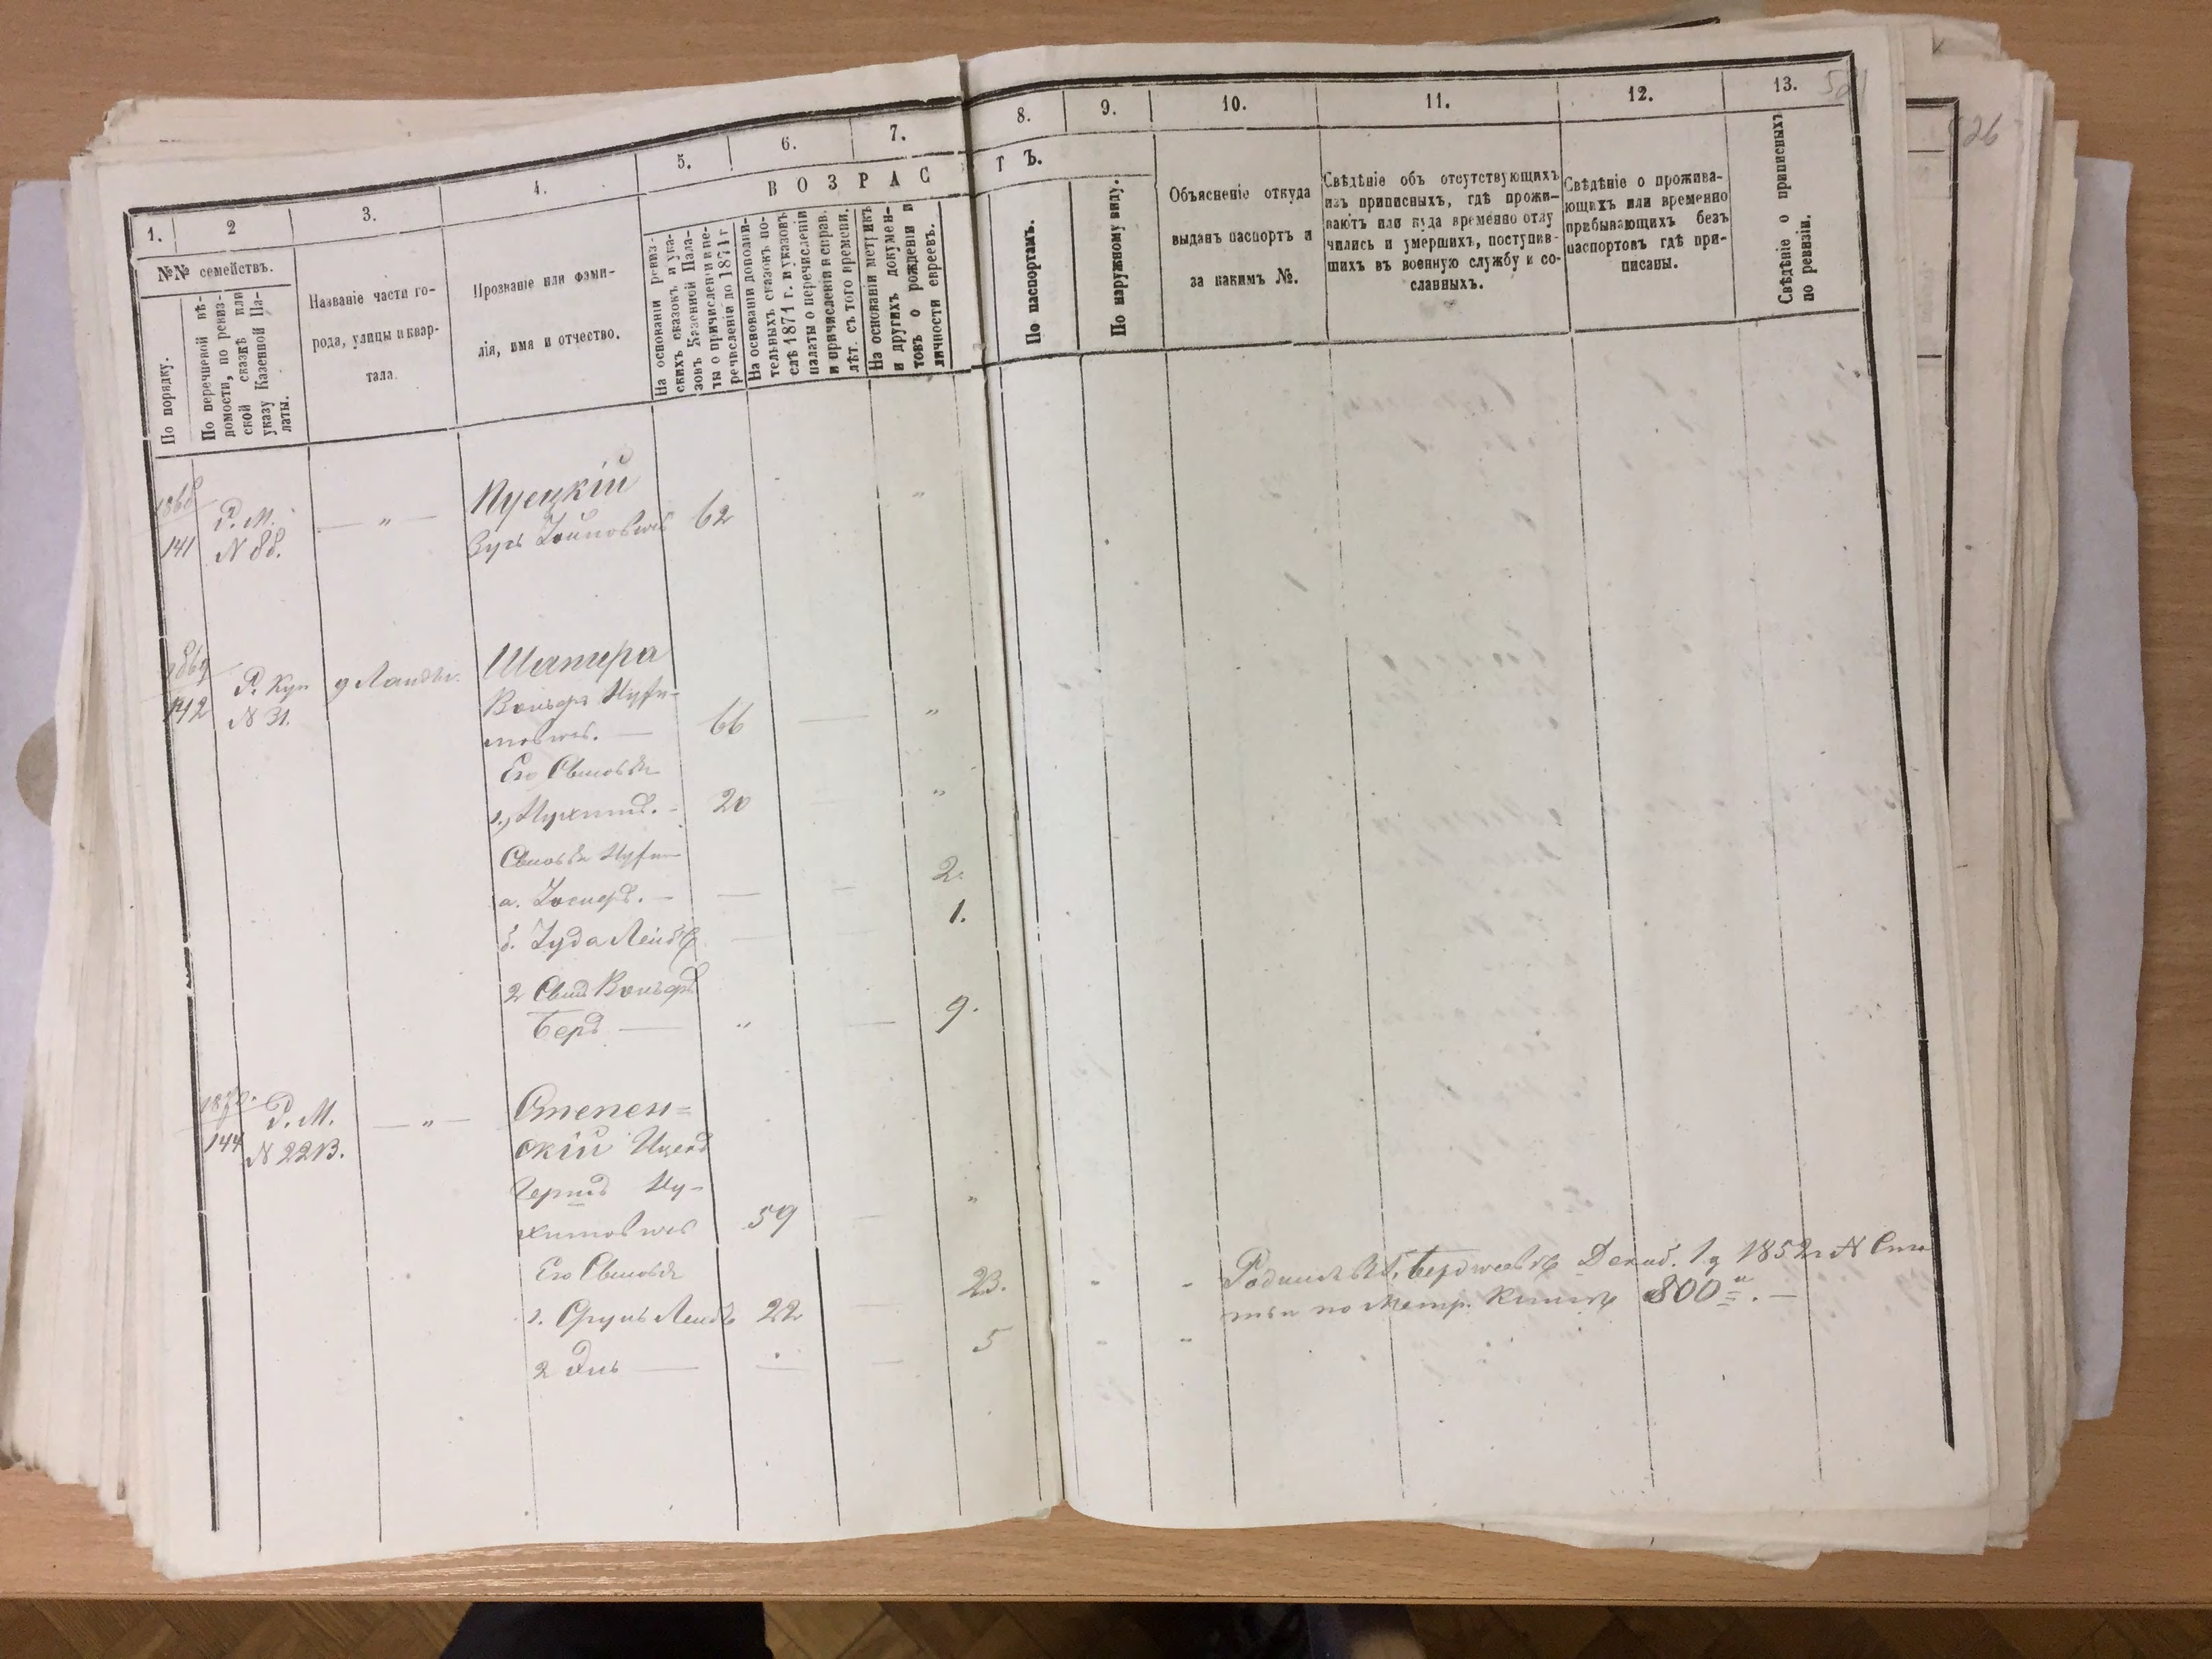 1.
2
3.
4.
5.
6.
7.
8.
9.
10.
11.
12.
13.
ВОЗРАС
ТЪ.
№№ семействъ.
По порядку.
По перечневой вѣ-
домости, по ревиз-
ской сказкѣ или
указу Казенной Па-
латы.
Названіе части го-
рода, улицы и квар-
тала.
Прозваніе или фами-
лія, имя и отчество.
На основаніи ревиз-
скихъ сказокъ и ука-
зовъ Казенной Пала-
ты о причисленіи и пе-
речисленіи до 1874 г
На основаніи дополни-
тельныхъ сказокъ по-
слѣ 1874 г. и указовъ
палаты о перечисленіи
и причисленіи и справ.
лѣт. съ того времени.
На основаніи метрикъ
и другихъ докумен-
товъ о рожденіи и
личности евреевъ.
По паспортамъ.
По наружному виду.
Объясненіе откуда
выданъ паспортъ и
за какимъ №.
Свѣдѣніе объ отсутствующихъ
изъ приписныхъ, гдѣ прожи-
ваютъ или куда временно отлу
чились и умершихъ, поступив-
шихъ въ военную службу и со-
сланныхъ.
Свѣдѣніе о прожива-
ющихъ или временно
прибывающихъ безъ
паспортовъ гдѣ при-
писаны.
Свѣдѣніе о приписныхъ
по ревизіи.
1868
141
Р. М.
N 88.
— " —
62
1869
142
Р. Куп
N 31.
Шапира
Вольфъ
66
Его Сыновья
20
Сыновья
а. Іосифъ. —
2.
б. Іуда Лейбъ
1.
2 Сынъ Вольфа
Беръ —
9.
1870.
144
Р. М.
N 22В.
— " —
Степен=
скій Ицекъ
Гершъ Ну-
химовичъ
59
Его Сыновья
1. Сруль Лейбъ
22
23.
2 Эль —
5
Родился въ г. Бердичевѣ Декаб. 1 д 1852 г N
по Метр. Книгѣ 800
26